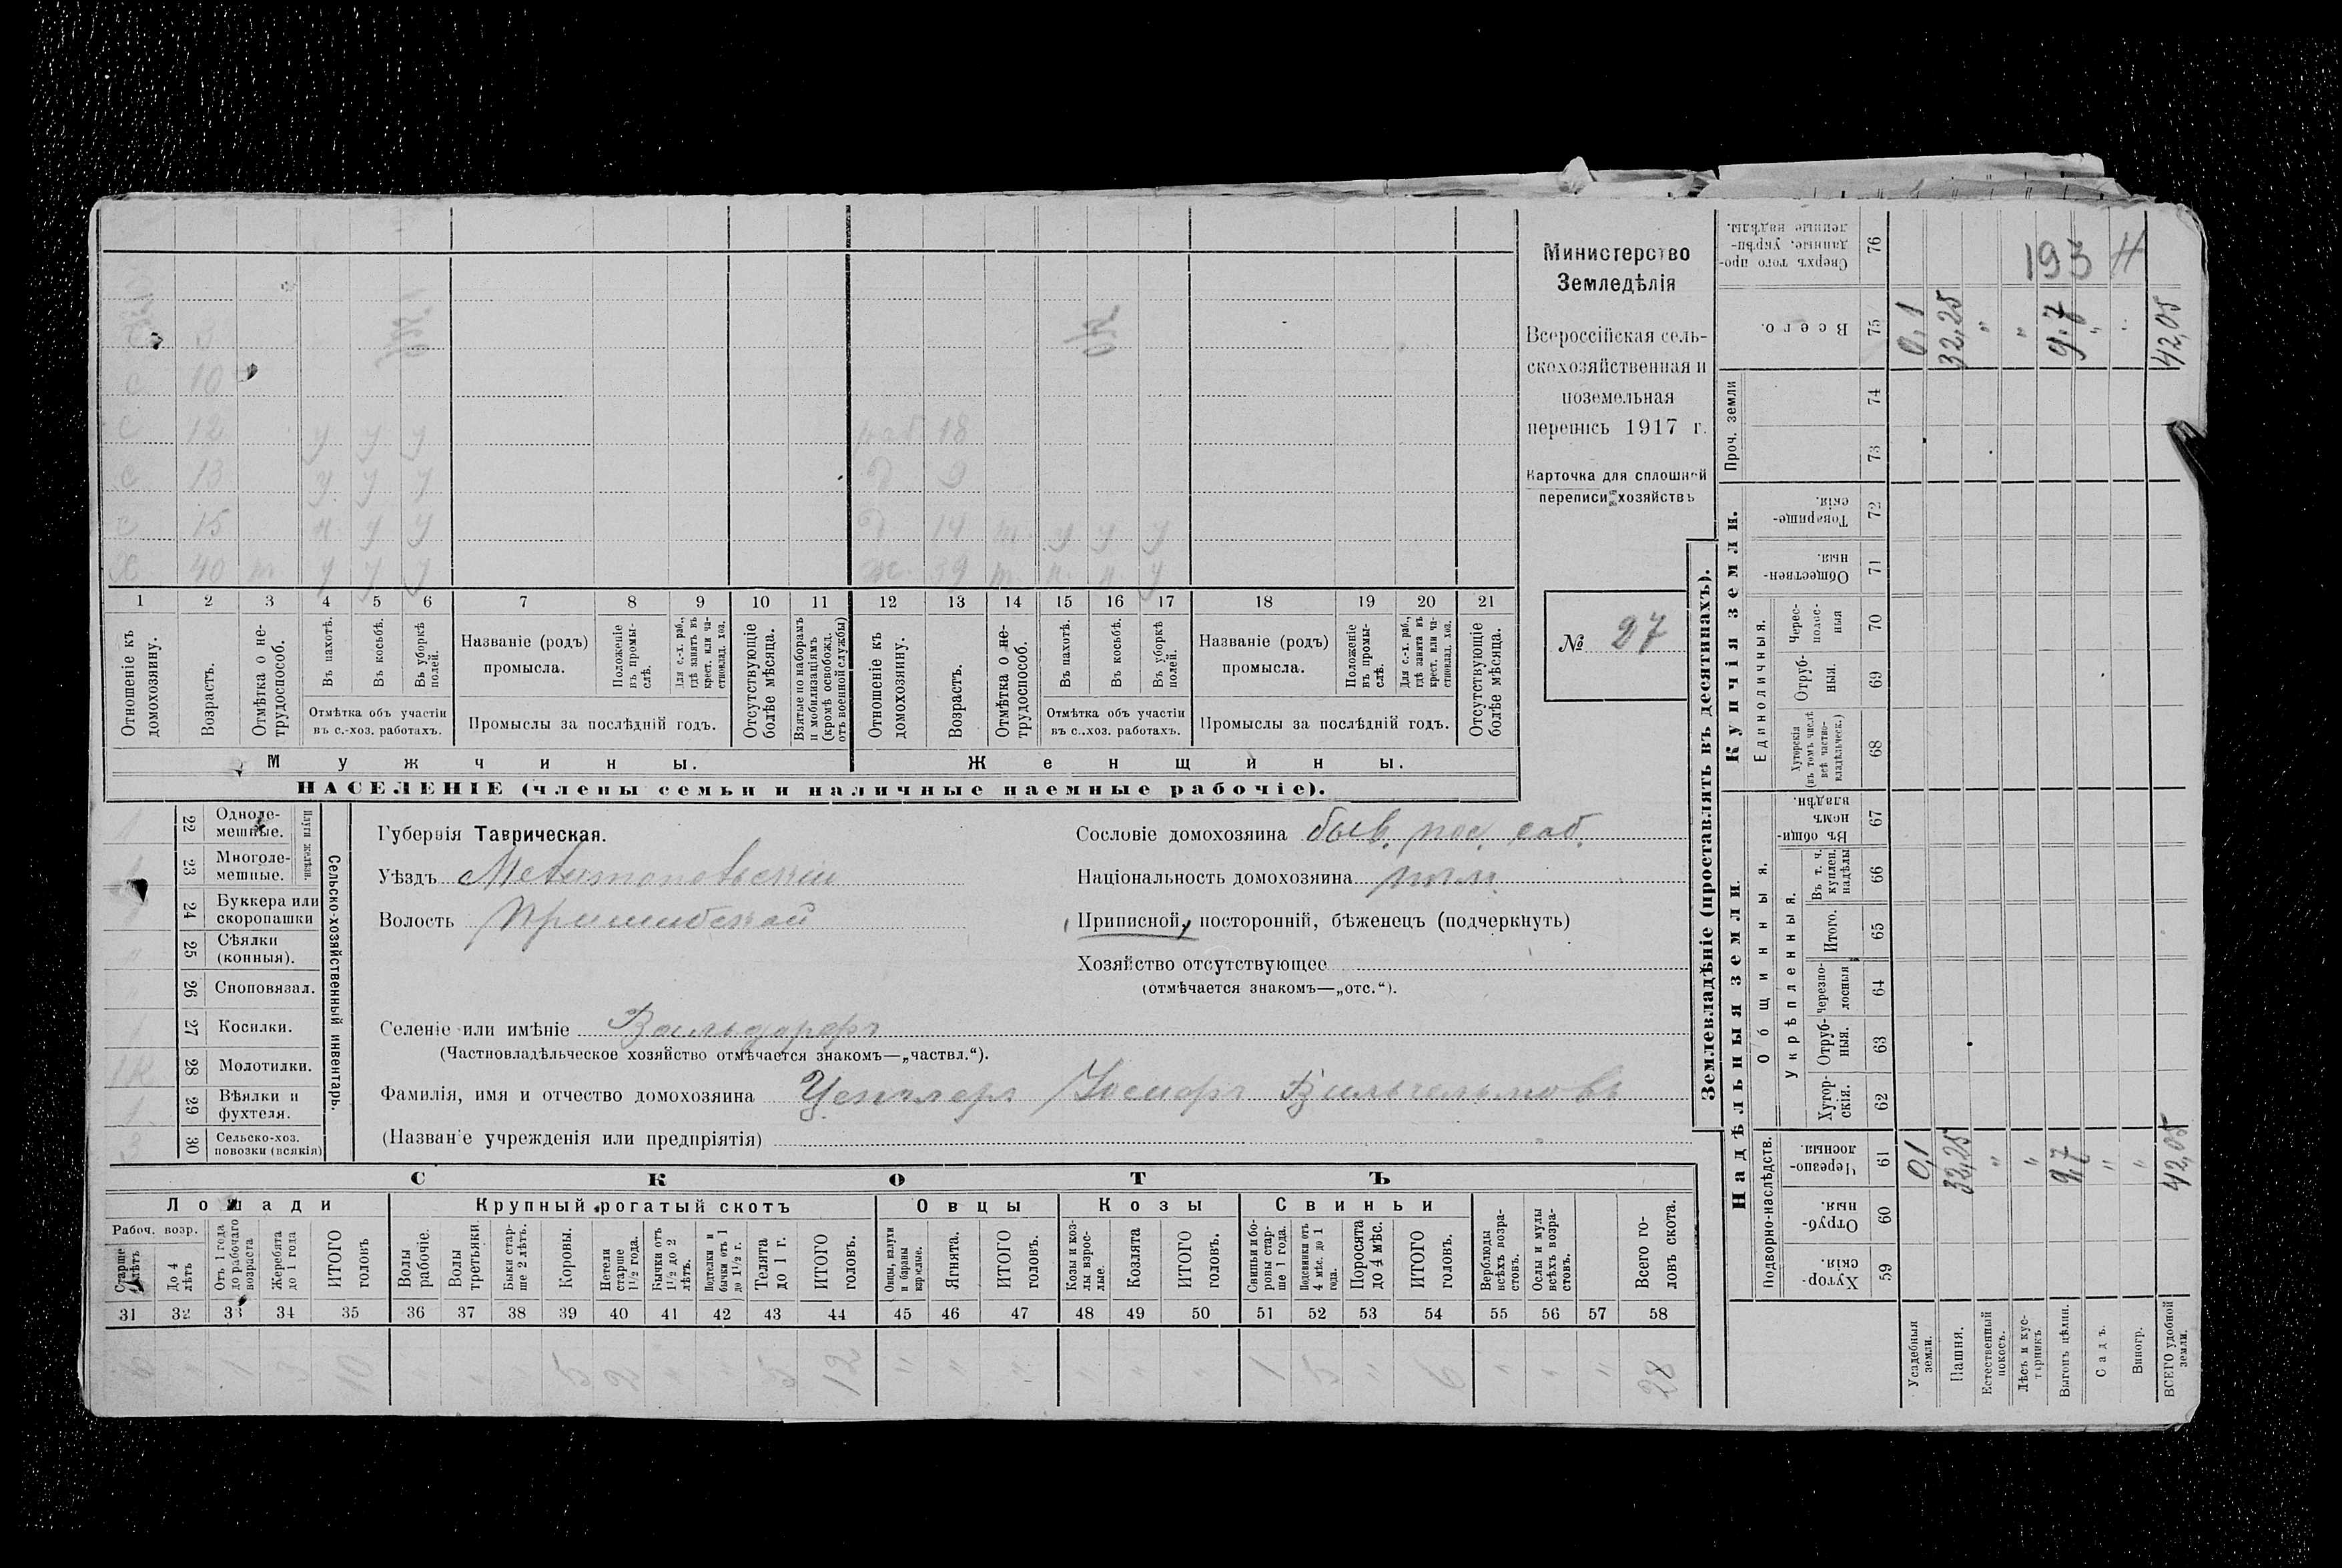 Министерство
Земледѣлія
Всероссійская сель-
скохозяйственная и
поземельная
перепись 1917 г.
Карточка для сплошной
переписи хозяйствъ
№ 27
С 10
С 12 у у у раб 18
С 13 у у у д 9
С 15 п. у у д 14 т. у у у
Х 40 т. у у у ж. 39 т. п. п. у
1 2 3 4 5 6 7 8 9 10 11 12 13 14 15 16 17 18 19 20 21
Отношеніе къ домохозяину.
Возрастъ.
Отмѣтка о не-трудоспособ.
Въ пахотѣ.
Въ косьбѣ.
Въ уборкѣ полей.
Отмѣтка объ участіи въ с.-хоз. работахъ.
Названіе (родъ) промысла.
Положеніе въ промы-слѣ.
Для с.-х. раб., гдѣ занятъ въ крест. или ча-стновлад. хоз.
Промыслы за послѣдній годъ.
Отсутствующіе болѣе мѣсяца.
Взятые по наборамъ и мобилизаціямъ (кромѣ освобожд. отъ военной службы)
Отношеніе къ домохозяину.
Возрастъ.
Отмѣтка о не-трудоспособ.
Въ пахотѣ.
Въ косьбѣ.
Въ уборкѣ полей.
Отмѣтка объ участіи въ с.-хоз. работахъ.
Названіе (родъ) промысла.
Положеніе въ промы-слѣ.
Для с.-х. раб., гдѣ занята въ крест. или ча-стновлад. хоз.
Промыслы за послѣдній годъ.
Отсутствующіе болѣе мѣсяца.
Мужчины. Женщины.
НАСЕЛЕНІЕ (члены семьи и наличные наемные рабочіе).
Сельско-хозяйственный инвентарь.
Плуги желѣзн.
22 Одноле-мешные. 1
23 Многоле-мешные. 1
24 Буккера или скоропашки 1
25 Сѣялки (конныя). "
26 Сноповязал. "
27 Косилки. 1
28 Молотилки. 1к
29 Вѣялки и фухтеля. 1
30 Сельско-хоз. повозки (всякія) 3
Губернія Таврическая.
Уѣздъ Мелитопольскій
Волость Пришибская
Сословіе домохозяина быв. пос. соб.
Національность домохозяина нѣм.
Приписной, посторонній, бѣженецъ (подчеркнуть)
Хозяйство отсутствующее
(отмѣчается знакомъ—„отс.“).
Селеніе или имѣніе Вальдорфъ
(Частновладѣльческое хозяйство отмѣчается знакомъ—„частвл.“).
Фамилія, имя и отчество домохозяина Центлеръ Вильгельмовъ
(Названіе учрежденія или предпріятія)
СКОТЪ
Лошади Крупный рогатый скотъ Овцы Козы Свиньи
Рабоч. возр.
Старше лѣтъ
До 4 лѣтъ
Отъ 1 года до рабочаго возраста
Жеребята до 1 года
ИТОГО головъ
Волы рабочіе.
Волы третьяки.
Быки стар-ше 2 лѣтъ.
Коровы.
Нетели старше 1½ года.
Бычки отъ 1½ до 2 лѣтъ.
Подтелки и бычки отъ 1 до 1½ г.
Телята до 1 г.
ИТОГО головъ.
Овцы, валухи и бараны взрослые.
Ягнята.
ИТОГО головъ.
Козы и коз-лы взрос-лые.
Козлята
ИТОГО головъ.
Свиньи и бо-ровы стар-ше 1 года.
Подсвинки отъ 4 мѣс. до 1 года.
Поросята до 4 мѣс.
ИТОГО головъ.
Верблюды всѣхъ возра-стовъ.
Ослы и мулы всѣхъ возра-стовъ.
Всего го-ловъ скота.
31 32 33 34 35 36 37 38 39 40 41 42 43 44 45 46 47 48 49 50 51 52 53 54 55 56 57 58
6 10 5 2 " " 5 12 " " " " " " 1 5 " 6 " " " 28
Землевладѣніе (проставлять въ десятинахъ).
Надѣльныя земли. Купчія земли. Проч. земли
Подворно-наслѣдств. Общинныя. Единоличныя.
Укрѣпленныя.
59 Хутор-скія.
60 Отруб-ныя.
61 Черезпо-лосныя.
62 Хутор-скія.
63 Отруб-ныя.
64 Черезпо-лосныя
65 Итого.
66 Въ т. ч. куплен. надѣлы
67 Въ общин-номъ владѣн.
68 Хуторскія (въ томъ числѣ всѣ частно-владѣльческ.)
69 Отруб-ныя.
70 Черес-полос-ныя
71 Обществен-ныя.
72 Товарище-скія.
73
74
75 Всего.
76 Сверхъ того про-данные, укрѣп-ленные надѣлы.
193 Н
Усадебныя земли. 0,1 0,1
Пашня. 32,25 32,25
Естественный покосъ. " "
Лѣсъ и кус-тарникъ " "
Выгонъ цѣлин. 9,7 9,7
Садъ. " "
Виногр. " "
ВСЕГО удобной земли. 42,05 42,05